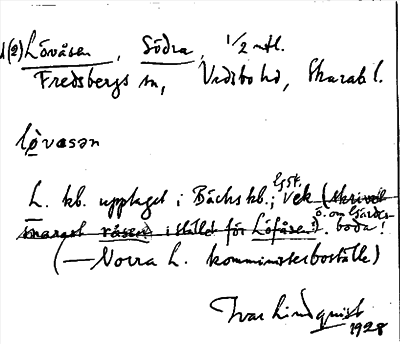 (2) Lövåsen, Södra, 1/2 mtl.
Fredsbergs sn, Vadsbo hd, Skarab l.
lǫvasən
L. kb. upptaget i Bäcks kb.; vek (skrivet
snarast våsen i stället för Löfåsen?). ö. om Gårdes-
boda!
(— Norra L. komministerboställe)
Ivar Lindquist
1928